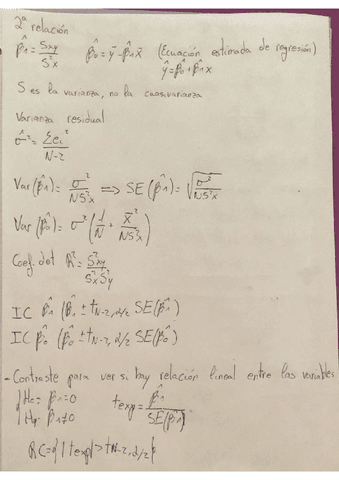 2ª relación
β̂1 = Sxy/S²x   β̂0 = ȳ - β̂1x̄   (Ecuación estimada de regresión)
ŷ = β̂0 + β̂1x
S es la varianza, no la cuasivarianza
Varianza residual
σ̂² = Σei²/N-2
Var(β̂1) = σ²/NS²x ⟹ SE(β̂1) = √(σ²/NS²x)
Var(β̂0) = σ²(1/N + x̄²/NS²x)
Coef. det R² = S²xy/S²xS²y
IC β̂1 (β̂1 ± tN-2, α/2 SE(β̂1))
IC β̂0 (β̂0 ± tN-2, α/2 SE(β̂0))
- Contraste para ver si hay relación lineal entre las variables
{ H0 = β̂1 = 0   texp = β̂1/SE(β̂1)
H1 = β̂1 ≠ 0
RC = {|texp| > tN-2, α/2}